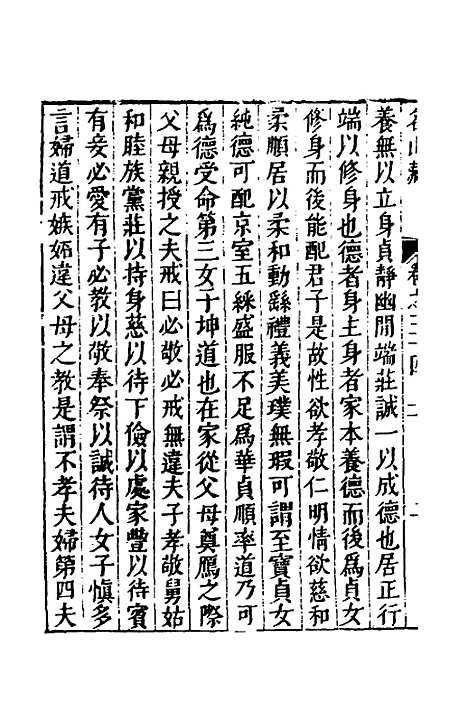 名山藏 卷之三十四
養無以立身貞靜幽閒端莊誠一以成德也居正行
端以修身也德者身主身者家本養德而後爲貞女
修身而後能配君子是故性欲孝敬仁明情欲慈和
柔順居以柔和動繇禮義美璞無瑕可謂至寶貞女
純德可配京室五綵盛服不足爲華貞順率道乃可
爲德受命第三女十坤道也在家從父母奠鴈之際
父母親授之夫戒曰必敬必戒無違夫子孝敬舅姑
和睦族黨莊以持身慈以待下儉以處家豐以待賓
有妾必愛有子必教以敬奉祭以誠待人女子愼多
言婦道戒嫉妬違父母之教是謂不孝夫婦第四夫